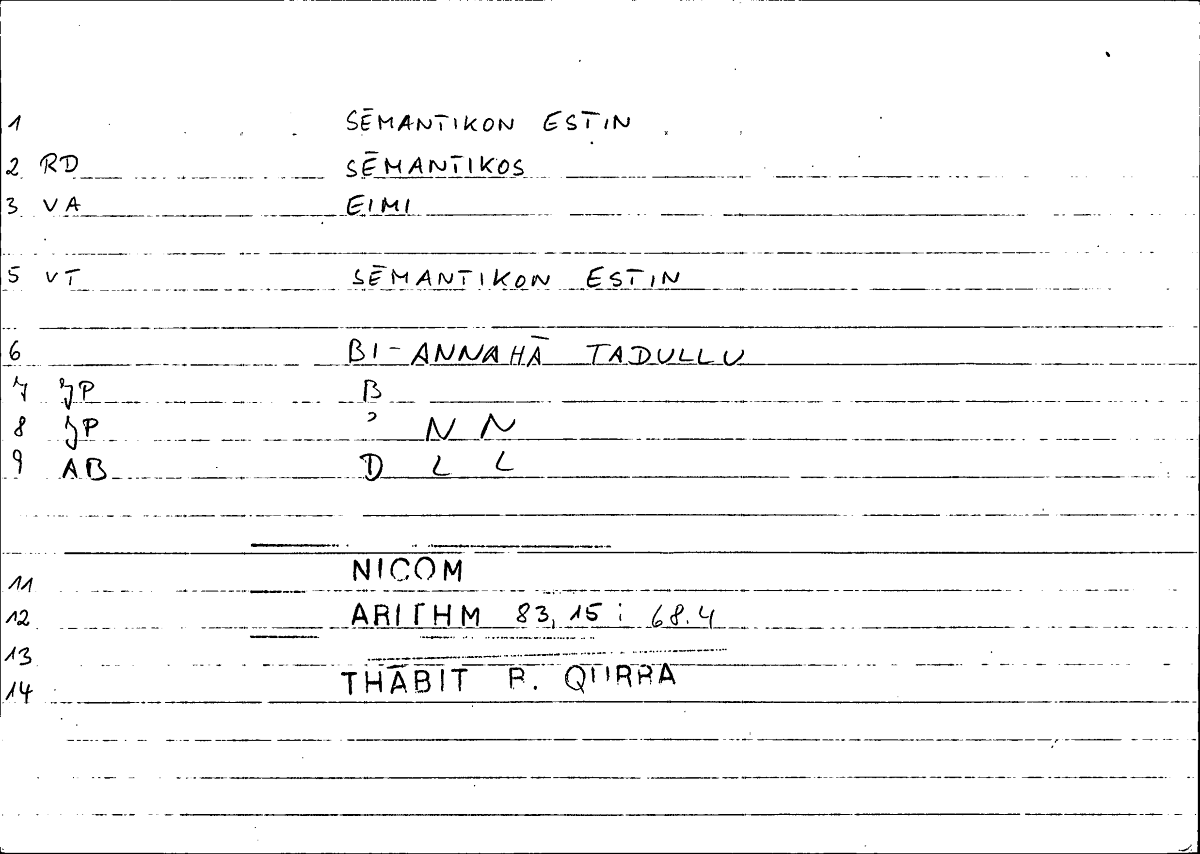 1 SĒMANTIKON ESTIN
2 RD SĒMANTIKOS
3 VA EIMI
5 VT SĒMANTIKON ESTIN
6 BI-ANNAHĀ TADULLU
7 JP B
8 JP ʾ N N
9 AB D L L
11 NICOM
12 ARITHM 83,15 ; 68.4
13
14 THĀBIT B. QURRA